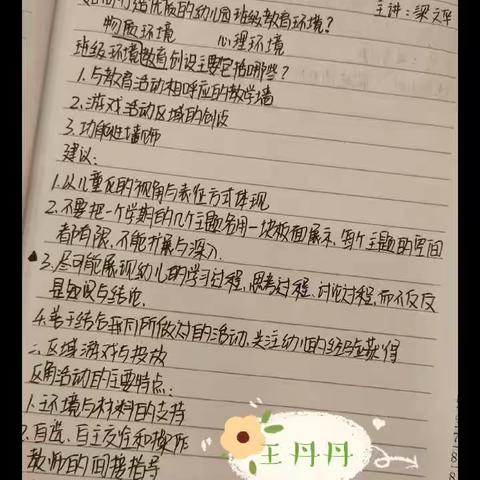 如何打造优质的幼儿园班级教育环境?
主讲:梁文华
物质环境 心理环境
班级环境教育创设主要包括哪些?
1.与教育活动相呼应的教学墙
2.游戏活动区域的创设
3.功能性墙饰
建议:
1.以儿童化的视角与表征方式体现
2.不要把一个学期的几个主题名用一块板面展示,每个主题的空间
都有限,不能扩展与深入.
▲3.尽可能展现幼儿的学习过程,思考过程,讨论过程,而不仅仅
是知识与结论.
4.关于结合我们所做过的活动,关注幼儿的经验获得
二、区域游戏与投放
区角活动的主要特点:
1.环境与材料的支持
2.自选、自主交往和操作
教师的间接指导
王丹丹